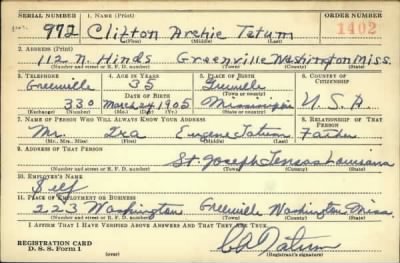 SERIAL NUMBER 1. NAME (Print) ORDER NUMBER
972 Clifton Archie Tatum 1402
(First) (Middle) (Last)
2. ADDRESS (Print)
112 N. Hinds Greenville Washington Miss.
(Number and street or R. F. D. number) (Town) (County) (State)
3. TELEPHONE 4. AGE IN YEARS 5. PLACE OF BIRTH 6. COUNTRY OF CITIZENSHIP
Greenville 35 Greenville
DATE OF BIRTH (Town or county)
330 March 24, 1905 Mississippi U.S.A.
(Exchange) (Number) (Mo.) (Day) (Yr.) (State or country)
7. NAME OF PERSON WHO WILL ALWAYS KNOW YOUR ADDRESS 8. RELATIONSHIP OF THAT PERSON
Mr. Ira Eugene Tatum Father
(Mr., Mrs., Miss) (First) (Middle) (Last)
9. ADDRESS OF THAT PERSON
St. Joseph Tensas Louisiana
(Number and street or R. F. D. number) (Town) (County) (State)
10. EMPLOYER'S NAME
Self
11. PLACE OF EMPLOYMENT OR BUSINESS
223 Washington Greenville Washington Miss.
(Number and street or R. F. D. number) (Town) (County) (State)
I AFFIRM THAT I HAVE VERIFIED ABOVE ANSWERS AND THAT THEY ARE TRUE.
REGISTRATION CARD
D. S. S. Form 1 (over) C A Tatum
(Registrant's signature)